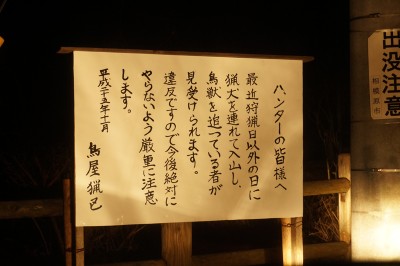 ハンターの皆様へ
最近狩猟日以外の日に
猟犬を連れて入山し、
鳥獣を追っている者が
見受けられます。
違反ですので今後絶対に
やらないよう厳重に注意
します。
平成二十五年十一月
鳥屋猟区
出没注意
相模原市